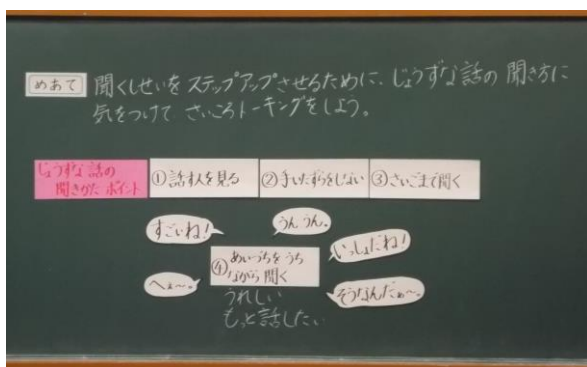 めあて 聞くしせいを ステップアップさせるために、じょうずな話の 聞き方に
気をつけて さいころトーキングをしよう。
じょうずな話の
聞きかた ポイント
①話す人を見る
②手いたずらをしない
③さいごまで聞く
すごいね!
うんうん。
いっしょだね!
④あいづちを うち
ながら 聞く
へぇ〜。
そうなんだぁ〜。
うれしい
もっと話したい